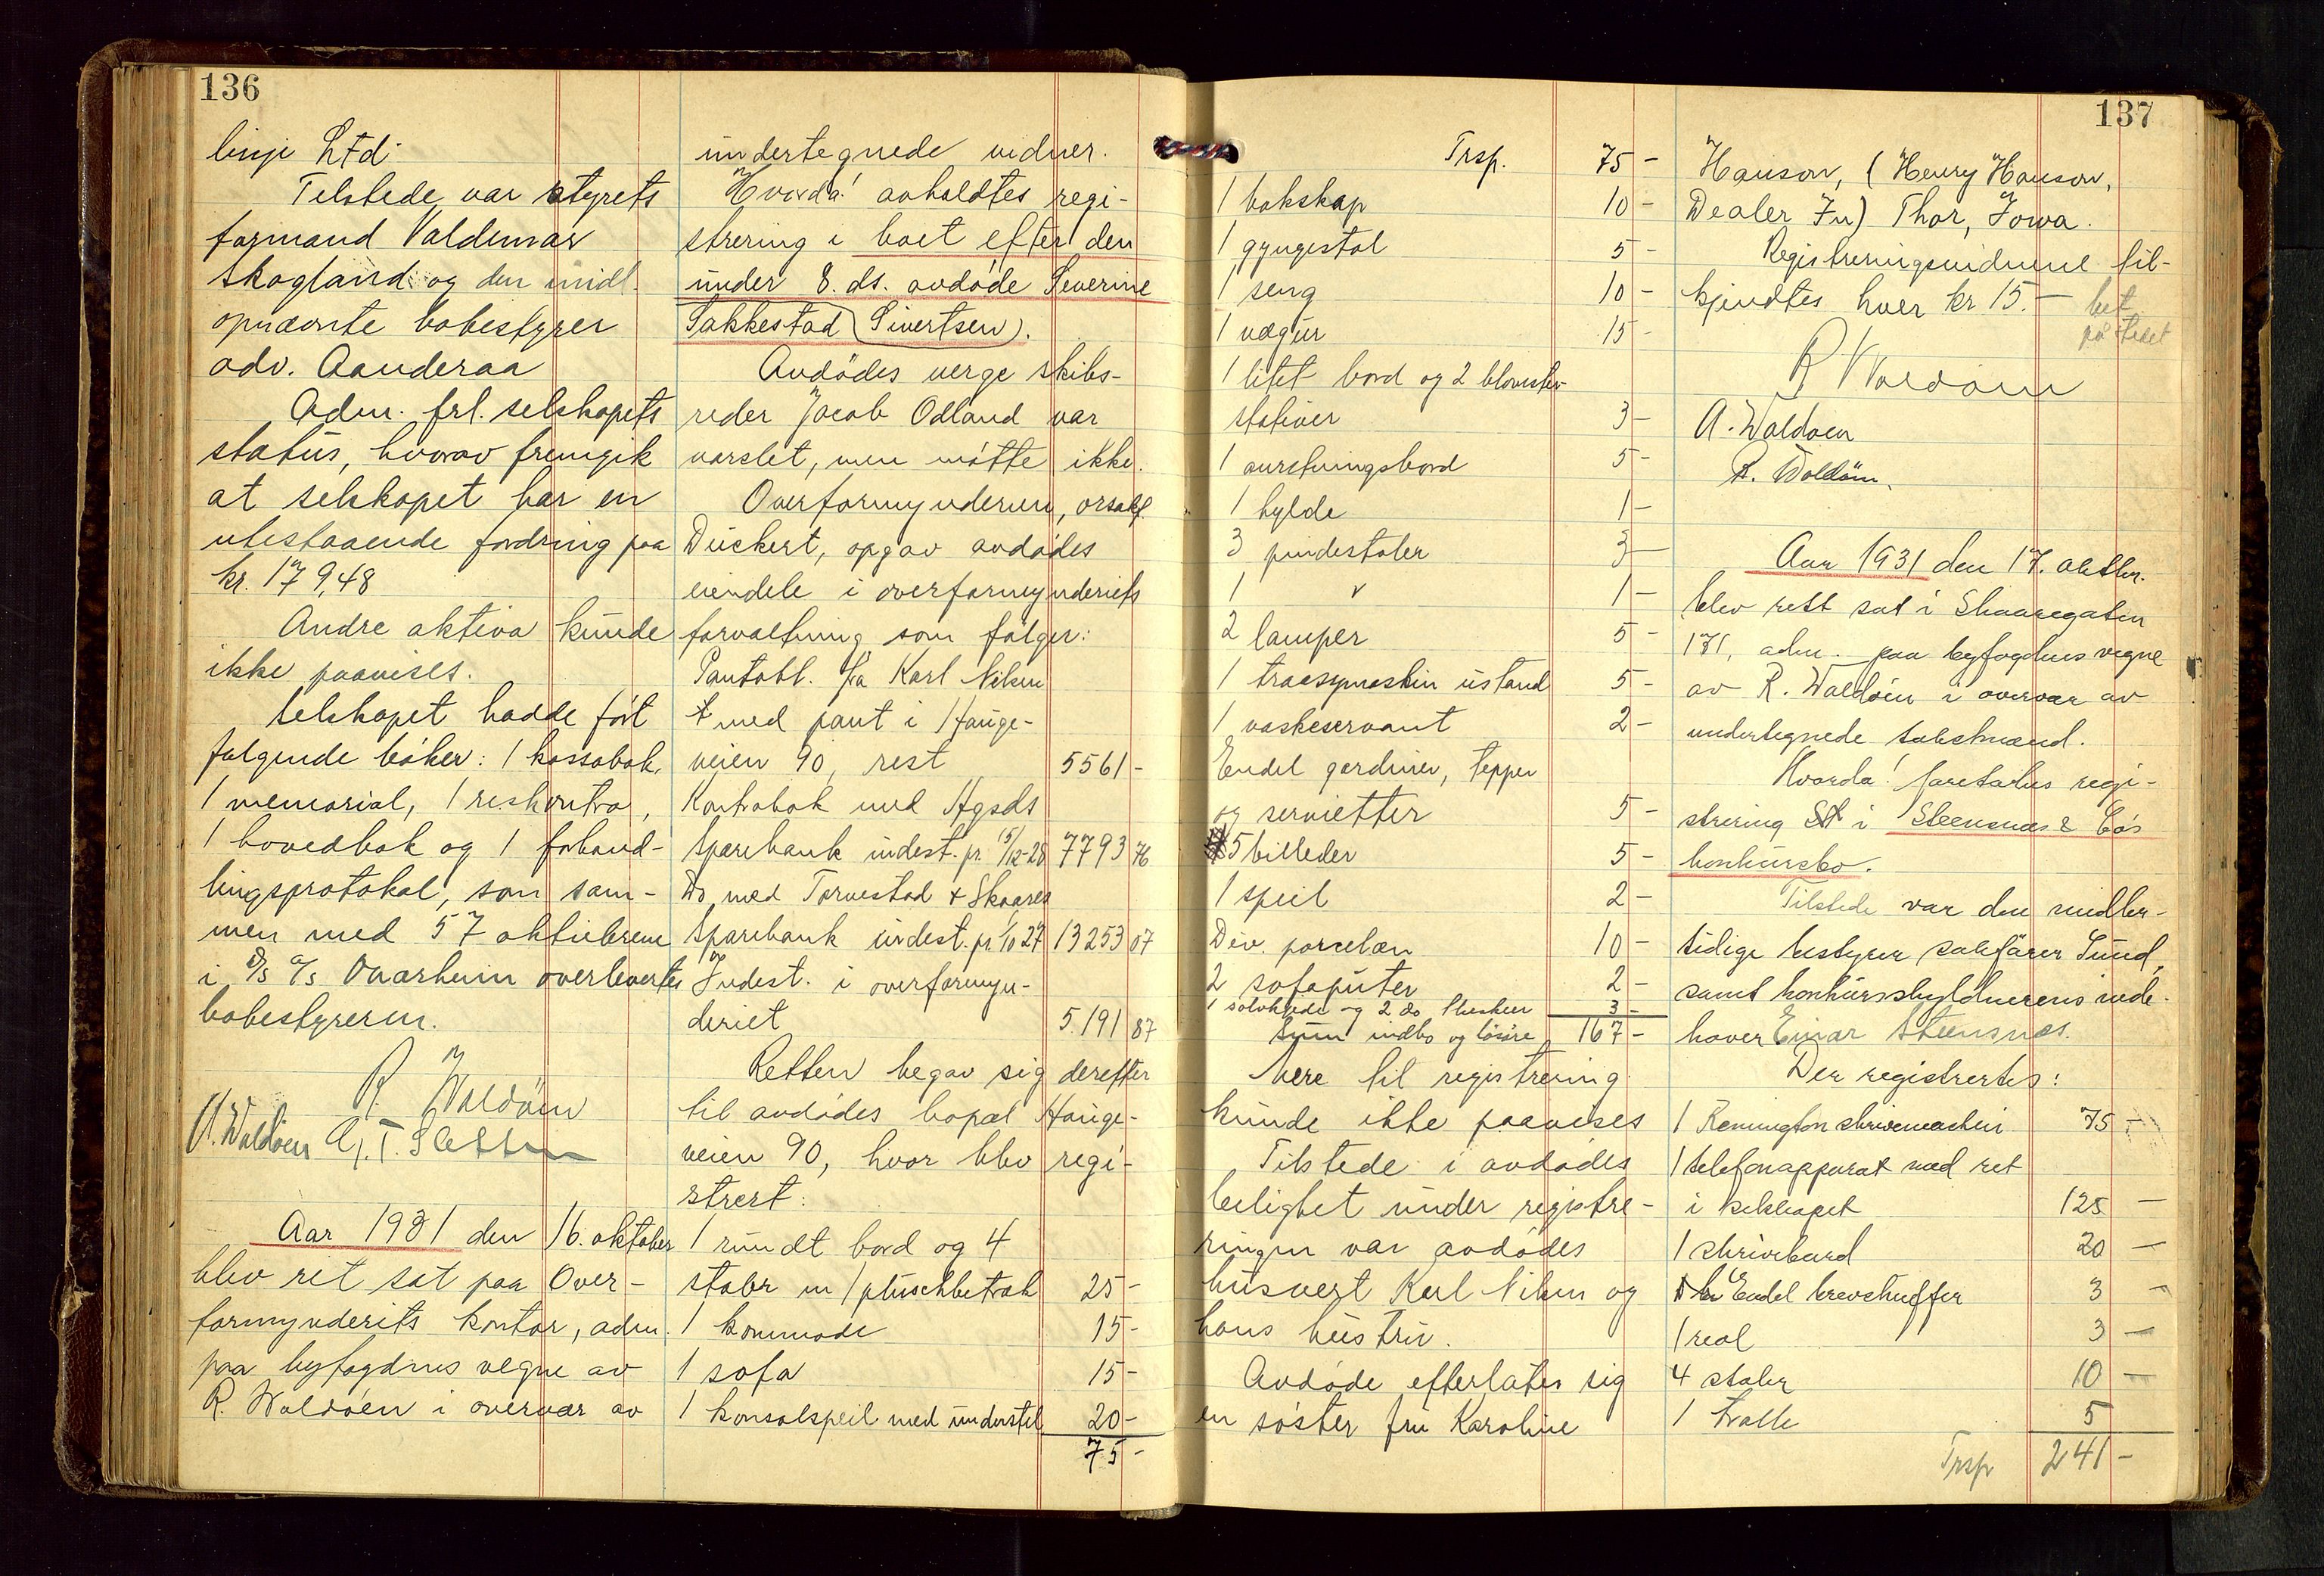 136
linje Ltd.
Tilstede var styrets
formand Valdemar
Skogland og den midl.
opnævnte bobestyrer
adv. Aanderaa
Adm. frl. selskapets
status, hvorav fremgik
at selskapet har en
utestaaende fordring paa
kr. 179,48
Andre aktiva kunde
ikke paavises.
Selskapet hadde ført
følgende bøker: 1 kassabok,
1 memorial, 1 reskontra,
1 hovedbok og 1 forhand-
lingsprotokol, som sam-
men med 57 aktiebreve
i D/S A/S Ovarheim overlevertes
bobestyreren.
R. Waldøen
A. Waldøen A. T. Sletten
Aar 1931 den 16. oktober
blev ret sat paa Over-
formynderiets kontor, adm.
paa byfogdens vegne av
R. Waldøen i overvær av
undertegnede vidner.
Hvorda! avholdtes regi-
strering i boet efter den
under 8. ds. avdøde Severine
Sakkestad (Sivertsen).
Avdødes verge skibs-
reder Jacob Odland var
varslet, men møtte ikke.
Overformynderen, orsakf.
Dückert, opgav avdødes
eiendele i overformynderiets
forvaltning som følger:
Pantobl. fra Karl Nilsen
med pant i Hauge-
veien 90, rest 5561 -
Kontrabok med Hgsds
Sparebank indest. pr. 15/12-28 7793 76
Do. med Torvestad & Skaares
Sparebank indest. pr. 1/10 27 13253 07
Indest. i overformyn-
deriet 5.191 87
Retten begav sig derefter
til avdødes bopæl Hauge-
veien 90, hvor blev regi-
strert:
1 rundt bord og 4
stoler m/plüschbetræk 25 -
1 kommode 15 -
1 sofa 15 -
1 konsolspeil med understel 20 -
75 -
137
Trsp. 75 -
1 bokskap 10 -
1 gyngestol 5 -
1 seng 10 -
1 vægur 15 -
1 litet bord og 2 blomster-
stativer 3 -
1 anretningsbord 5 -
1 hylde 1 -
3 pindestoler 3 -
1 " 1 -
2 lamper 5 -
1 traasymaskin ustand 5 -
1 vaskeservant 2 -
Endel gardiner, tepper
og servietter 5 -
5 billeder 5 -
1 speil 2 -
Div. porcelæn 10 -
2 sofaputer 2 -
1 sølvkjede og 2 do skeer 3 -
Sum indbo og løsøre 167 -
Mere til registrering
kunde ikke paavises
Tilstede i avdødes
leilighet under registre-
ringen var avdødes
husvert Karl Nilsen og
hans hustru.
Avdøde efterlater sig
en søster fru Karoline
Hanson, (Henry Hanson,
Dealer In) Thor, Iowa.
Registreringsvidnene til-
kjendtes hver kr 15.- bet.
på stedet
R Waldøen
A. Waldøen
R. Waldøen.
Aar 1931 den 17. oktbr.
blev rett sat i Skaaregaten
171, adm. paa byfogdens vegne
av R. Waldøen i overvær av
undertegnede takstmænd.
Hvorda! foretokes regi-
strering i Steensnæs & Co's
konkursbo.
Tilstede var den midler-
tidige bestyrer sakfører Sund,
samt konkursskyldnerens inde-
haver Einar Steensnæs.
Der registrertes:
1 Remington skrivemaskin 75 -
1 telefonapparat med ret
i selskapet 125 -
1 skrivebord 20 -
Endel brevskuffer 3 -
1 reol 3 -
4 stoler 10 -
1 tralle 5
Trsp 241 -